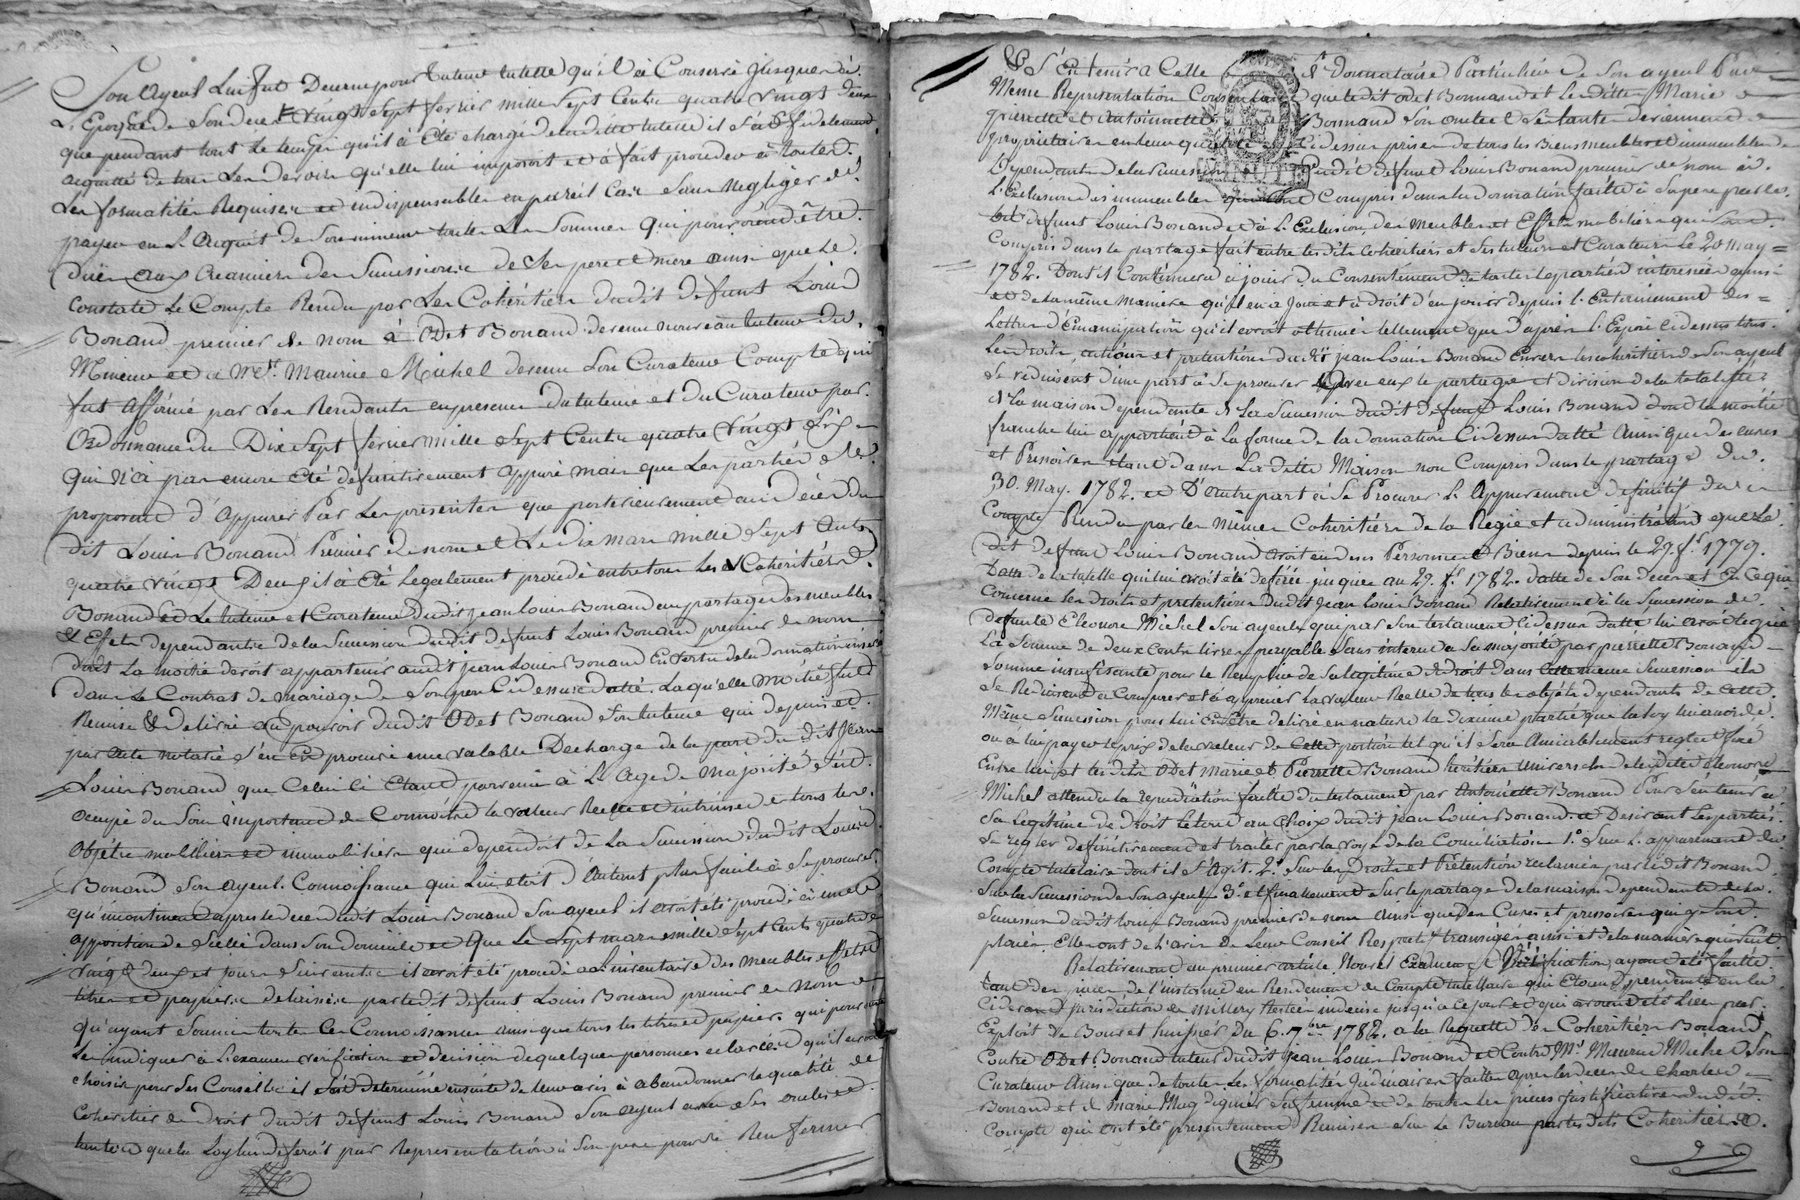 Son Ayeul Lui fut Decerné pour Tuteur tutelle qu'il à Conservé jusques à
L'Epoque de Son decés Vingt Sept fevrier mille Sept Cents quatre vingt deux
que pendant tout le temps qu'il à été chargé de la ditte tutelle il s'est fidelement
acquitté de tous Les devoirs qu'elle lui imposoit et à fait proceder à toutes
Les formalités Requises et indispensables en pareil Cas Sans Negliger de
payer en L'Acquit de Son mineur toutes Les Sommes qui pouvoient être
Duës aux Creanciers des Successions de Ses pere et mere ainsi que Le
Constate Le Compte Rendu par Les Cohéritiers dudit defunt Louis
Bonand premier de nom à Odet Bonand devenu nouveau tuteur du
Mineur et a Mr. Maurice Michel devenu Son Curateur Compte qui
fut Affirmé par Les Rendants en presence du tuteur et du Curateur par
Ordonnance du Dix Sept fevrier mille Sept Cents quatre Vingt
qui n'à pas encore été définitivement Appuré mais que Les parties Se
proposent d'Appurer Par Les presentes que posterieurement au décés du
dit Louis Bonand Premier de nom et Le dix mars mille Sept Cents
quatre vingt Deux il à été Legalement procedé entre tous Les Cohéritiers
Bonand et Le tuteur et Curateur dudit jean Louis Bonand au partage des meubles
et Effets dependants de la Succession dudit defunt Louis Bonand premier de nom
dont La moitié devoit appartenir audit jean Louis Bonand En Vertu de la donnation inserée
dans Le Contrat de mariage de Son pere Cidessus datté. Laquelle Moitié fut
Remise et delivrée au pouvoir dudit Odet Bonand Son tuteur qui depuis et
par acte notarié s'en est procuré une valable Decharge de la part du dit Jean
Louis Bonand que Celui Ci Etant parvenu à L'Age de Majorité s'est
Occupé du Soin important de Connoître la valeur Reelle et intrinseque de tous les
Objets mobiliers et immobiliers qui dependoit de La Succession dudit Louis
Bonand Son ayeul. Connoissance qui Lui étoit d'Autant plus facile à Se procurer
qu'incontinent apres le deces dudit Louis Bonand Son ayeul il avoit été procedé à une
apposition de Scellé dans Son domicile et Que Le Sept mars mille Sept Cents quatre
vingt deux et jours Suivants il avoit été procedé a L'inventaire des meubles effets
titres et papiers delaissés par ledit defunt Louis Bonand premier de nom
qu'ayant Soumis toutes Ces Connoissances ainsi que tous les titres et papiers qui pouvoient
Les indiquer à L'examen verification et decision de quelques personnes eclairées qu'il avoit
choisi pour Ses Conseils il s'est determiné ensuite de leur avis à abandonner la qualité de
Coheritier de droit dudit defunt Louis Bonand Son ayeul avec Ses oncles et
tantes que la Loy lui deferoit par Representation de Son pere pour Se Renfermer
Et S'En tenir a Celle de Donnataire Particulier de Son ayeul Par
Meme Representation Consentant que ledit Odet Bonnand et Lesdittes Marie
pierrette et Antoinette Bonnand Son oncle et Ses tantes deviennent
proprietaires en leur qualité Cidessus prise de tous les Biens meubles et immeubles
Dependants de la Succession dudit defunt Louis Bonand premier de nom à
L'Exclusion des immeubles Compris dans la donnation faitte à Son pere par le
dit defunt Louis Bonand et à L'Exclusion des Meubles et Effets mobiliers qui Sont
Compris dans le partage fait entre lesdits Cohéritiers et Ses tuteur et Curateur Le 20 may
1782. Dont il Continuera à jouir du Consentement de toutes les parties interessées ainsi
et de la même maniere qu'il en a Joui et à droit d'en jouir depuis L'Enterinement des
Lettres d'Emancipation qu'il avoit obtenues tellement que d'apres L'Exposé cidessus tous
Les droits, actions et pretentions dudit jean Louis Bonand Envers les cohéritiers de Son ayeul
Se reduisent d'une part à Se procurer avec eux le partage et division de la totalité
de La maison dependante de La Succession dudit defunt Louis Bonand dont la moitié
franche lui appartient à La forme de la donnation Cidessus datté Ainsi que des cuves
et Pressoires étant dans Laditte Maison non Compris dans le partage du
30. May. 1782. et D'autre part à Se Procurer L'Appurement definitif du
Compte Rendu par les mêmes Cohéritiers de la Regie et administration que Le
dit defunt Louis Bonand avoit eu de Sa Personne et Biens depuis le 29. 1779.
Datte de la tutelle qui lui avoit été deferée jusques au 27. 1782. datte de Son deces et En Ce qui
Concerne Les droits et pretentions dudit Jean Louis Bonand Relativement à la Succession de
defunte Eleonore Michel Son ayeule qui par Son testament Cidessus datté lui avoit legué
La Somme de deux Cents livres payable Sans interets a Sa majorité par pierrette Bonand
Somme insuffisante pour le Remplir de Sa legitime de droit dans Cette meme Succession ils
Se Reduisent a Composer et à apprecier la valeur Reelle de tous les objets dependants de Cette
Même Succession pour lui En Etre delivré en nature la dixieme partie que la loy lui accorde
ou a lui payer le prix de la valeur de Cette portion tel qu'il Sera Amiablement reglé et fixé
Entre lui et lesdits Odet Marie et Pierrette Bonand héritiers Universels de laditte Eleonore
Michel attendu la repudiation faitte du testament par Antoinette Bonand Pour S'en tenir a
Sa Legitime de droit le tout au Choix dudit jean Louis Bonand. et Desirant Les parties
Se regler definitivement et traiter par la voye de la Conciliation 1.° Sur L'appurement du
Compte tutelaire dont il S'Agit 2.° Sur les Droits et Pretentions reclamées par ledit Bonand
Sur la Succession de Son ayeule 3.° et finallement Sur le partage de la maison dependante de la
Succession dudit Louis Bonand premier de nom Ainsi que des Cuves et pressoires qui y Sont
placés. Elles ont de L'avis de Leurs Conseils Respectifs transigées ainsi et de la maniere qui Suit
Relativement au premier article Nouvel Examen et Vérification ayant été faitte
tant des pieces de L'instance en Reddement de Compte tutelaire qui Etoient pendante en la
Cidevant Jurisdiction de Millery Restée indecise jusqu'a ce jour et qui avoient été Liées par
Exploit de Bouret huissier du 6. 7bre 1782. a la Requette des Cohéritiers Bonand
Contre Odet Bonand tuteur dudit jean Louis Bonand et Contre Mr. Maurice Michel Son
Curateur Ainsi que de toutes Les formalités Judiciaires faittes apres les deces de Charles
Bonand et de Marie Magdelaine Sa femme et de toutes les pieces justificatives dudit
Compte qui ont été presentement Remises Sur Le Bureau par lesdits Cohéritiers.